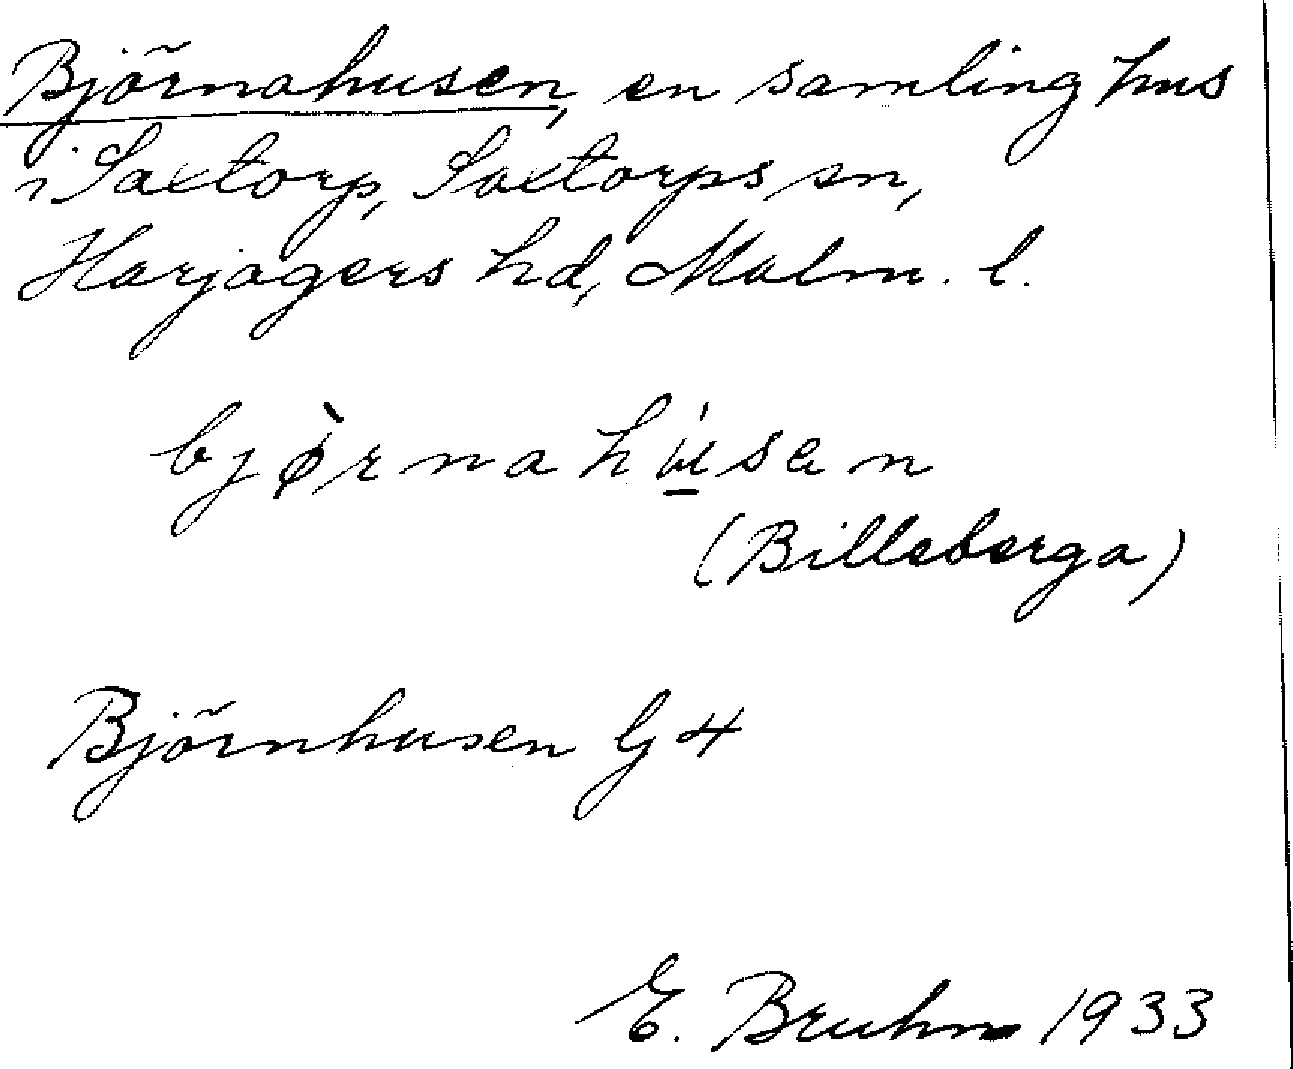 Björnahusen, en samling hus
i Saxtorp, Saxtorps sn,
Harjagers hd, Malm. l.
bjø̀rnahu̱̍sen
(Billeberga)
Björnhusen G4
E. Bruhn 1933